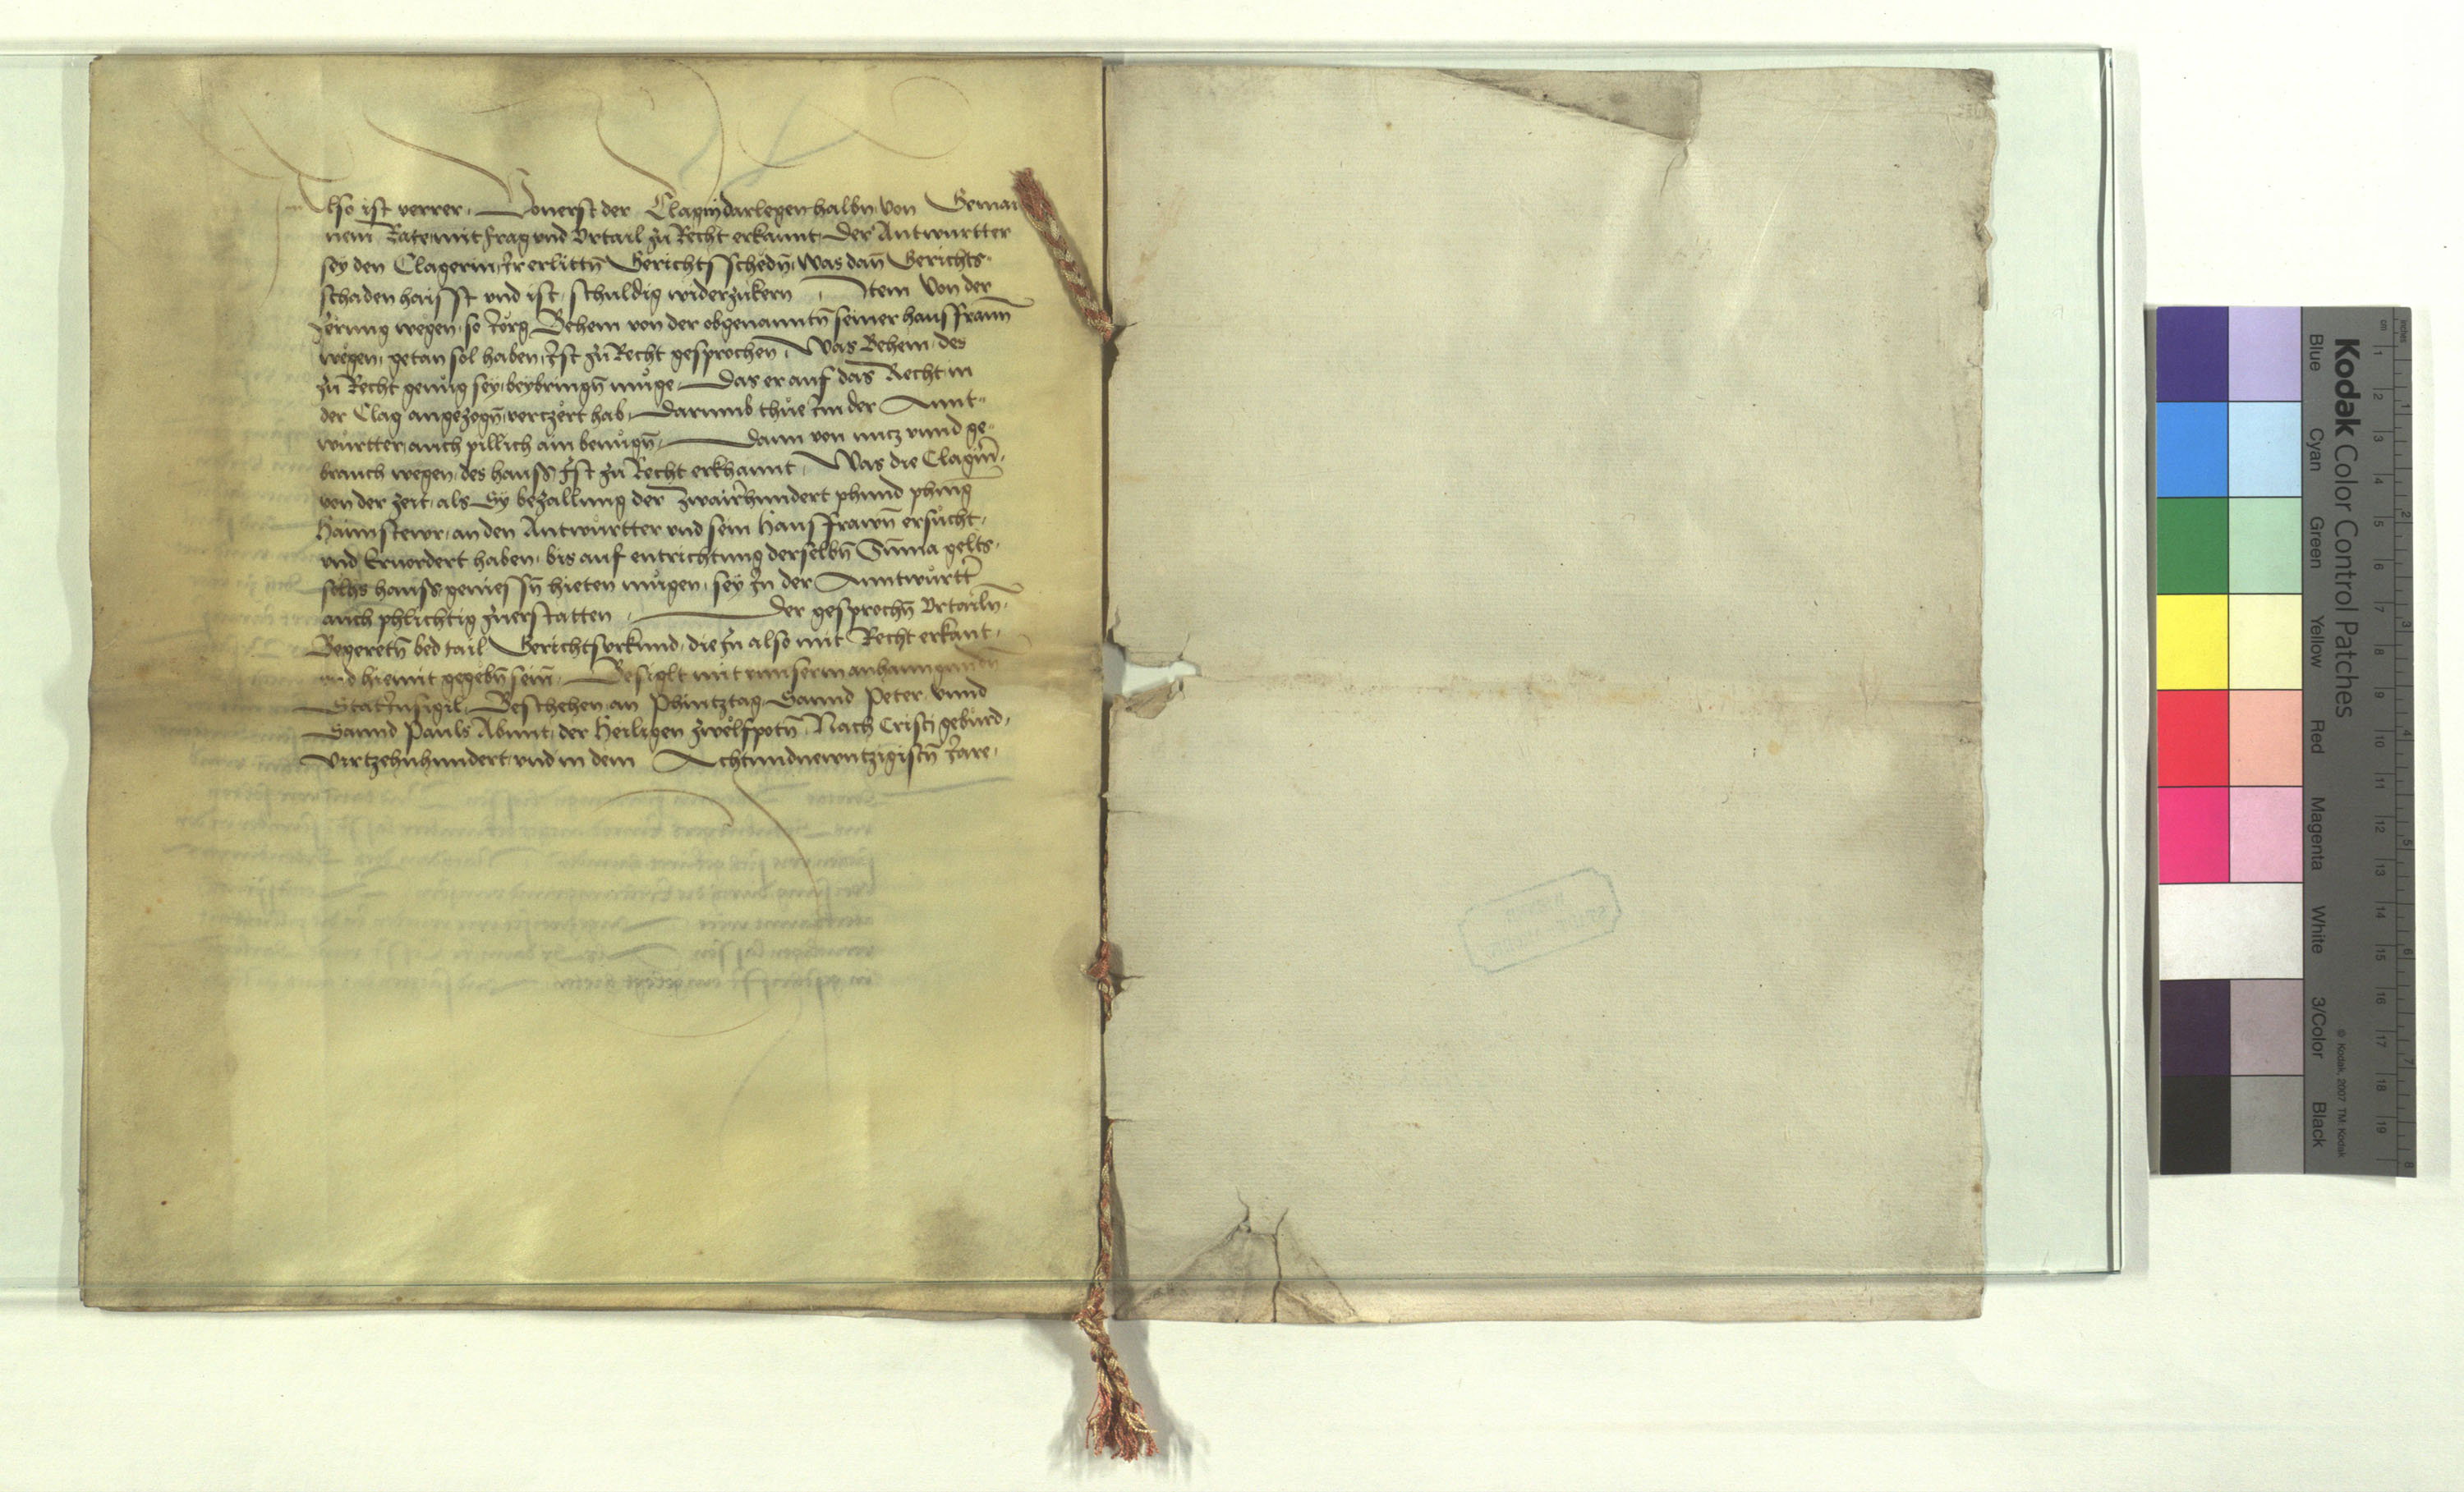 Also ist verrer, Vonerst der Clagin darlegen halbn von Gemai
nem Rate mit frag vnd Vrtail zu Recht erkannt, Der Antwurtter
sey den Clagerin, Ir erlittn̄ Gerichtsschedn̄, Was dan̄ Gerichts-
schaden haisst vnd ist, schuldig widerzukern, Item Von der
zerung wegen, so Jorg Behem von der obgenanntn̄ seiner hausfrawn̄
wegen, getan sol haben, Ist zu Recht gesprochen, Was Behem, des
zu Recht genug sey, beybringn̄ muge, Das er auf das Recht in
der Clag angezogn̄, verczert hab, Darumb thue Im der Annt-
wurtter, auch pillich ain benugn̄, Dann von nucz vnnd ge-
brauch wegen, des hauss, Ist zu Recht erkhannt, Was die Clagin̄,
von der zeit, als Sy bezallung der zwair hundert phund phnig
Haimstewr, an den Antwurtter vnd sein Hausfrawn̄ ersucht,
vnd Ervordert haben, bis auf entrichtung derselbn̄ Sūma gelts,
solhs hauss geniessn̄ hieten mugen, sey In der Anntwurtt̄
auch phlichtig zuerstatten, Der gesprochn̄ Vrtailn̄,
Begeretn̄ bed tail Gerichtsvrkund, die In also mit Recht erkant,
vnd hiemit gegebn̄ sein̄, Besiglt mit vnnserm anhanngundn̄
Stat Insigil, Beschehen an Phintztag, Sannd Peter, vnnd
Sannd Pauls Abunt, der Heiligen zwelfpotn̄, Nach Cristi geburd,
Virtzehnhundert, vnd in dem Achtundnewntzigistn̄ Jare,
Kodak Color Control Patches
Blue Cyan Green Yellow Red Magenta White 3/Color Black
© Kodak, 2007 TM: Kodak
cm 1 2 3 4 5 6 7 8 9 10 11 12 13 14 15 16 17 18 19
inches 1 2 3 4 5 6 7 8